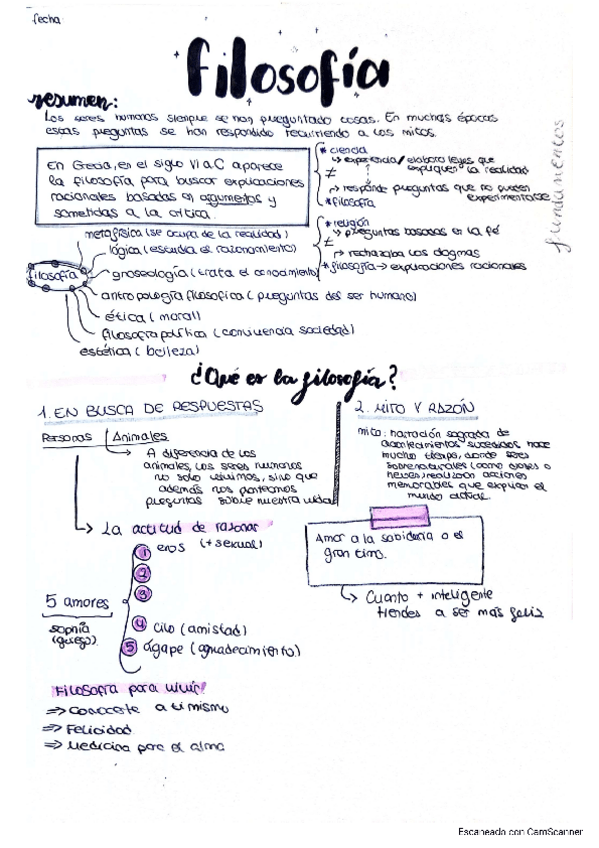 fecha
filosofía
resumen:
Los seres humanos siempre se han preguntado cosas. En muchas épocas
estas preguntas se han respondido recurriendo a los mitos.
En Grecia, en el siglo VI a.C aparece
la filosofía para buscar explicaciones
racionales basadas en argumentos y
sometidas a la crítica.
* ciencia
↳ experiencia/ elabora leyes que
expliquen la realidad
≠
↳ responde preguntas que no pueden
experimentarse
* filosofía
* religión
↳ preguntas basadas en la fé
≠
↳ rechazaba los dogmas
* filosofía → explicaciones racionales
fundamentos
filosofía
metafísica (se ocupa de la realidad)
lógica (estudia el razonamiento)
gnoseología (trata el conocimiento)
antropología filosofica (preguntas del ser humano)
ética (moral)
filosofía política (convivencia sociedad)
estética (belleza)
¿Qué es la filosofía?
1. EN BUSCA DE RESPUESTAS
Personas | Animales
↳ A diferencia de los
animales, los seres humanos
no solo vivimos, sino que
además nos planteamos
preguntas sobre nuestra vida
↳ La actitud de razonar
5 amores
sophía
(griego)
1 eros (+ sexual)
2
3
4 Cilo (amistad)
5 Ágape (agradecimiento)
2. MITO Y RAZÓN
mito: narración sagrada de
acontecimientos sucedidos hace
mucho tiempo, donde seres
sobrenaturales (como dioses o
héroes) realizan acciones
memorables que explican el
mundo actual.
Amor a la sabiduría o el
gran timo.
↳ Cuanto + inteligente
tiendes a ser más feliz
Filosofía para vivir!
⇒ Conocerte a ti mismo
⇒ Felicidad
⇒ Medicina para el alma
Escaneado con CamScanner